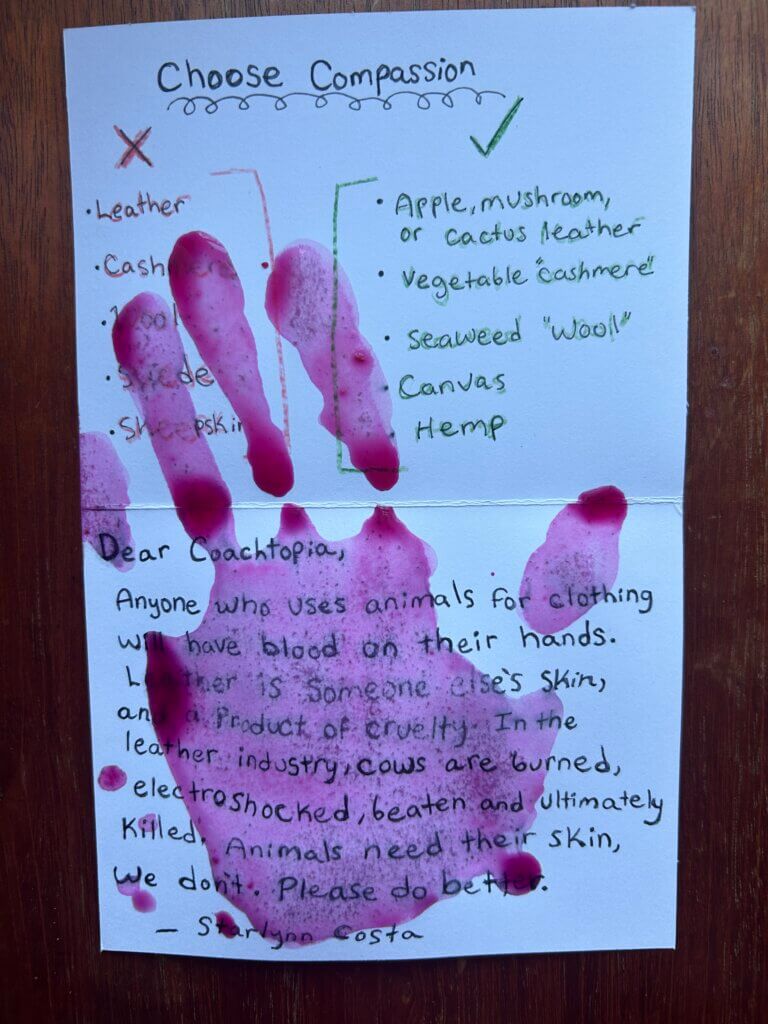 Choose Compassion
• Leather
• Cashmere
• Wool
• Suede
• Sheepskin
• Apple, mushroom,
or cactus leather
• Vegetable "cashmere"
• Seaweed "Wool"
Canvas
Hemp
Dear Coachtopia,
Anyone who uses animals for clothing
will have blood on their hands.
Leather is someone else's skin,
and a Product of cruelty. In the
leather industry, cows are burned,
electroshocked, beaten and ultimately
Killed. Animals need their skin,
We don't. Please do better.
— Starlynn Costa